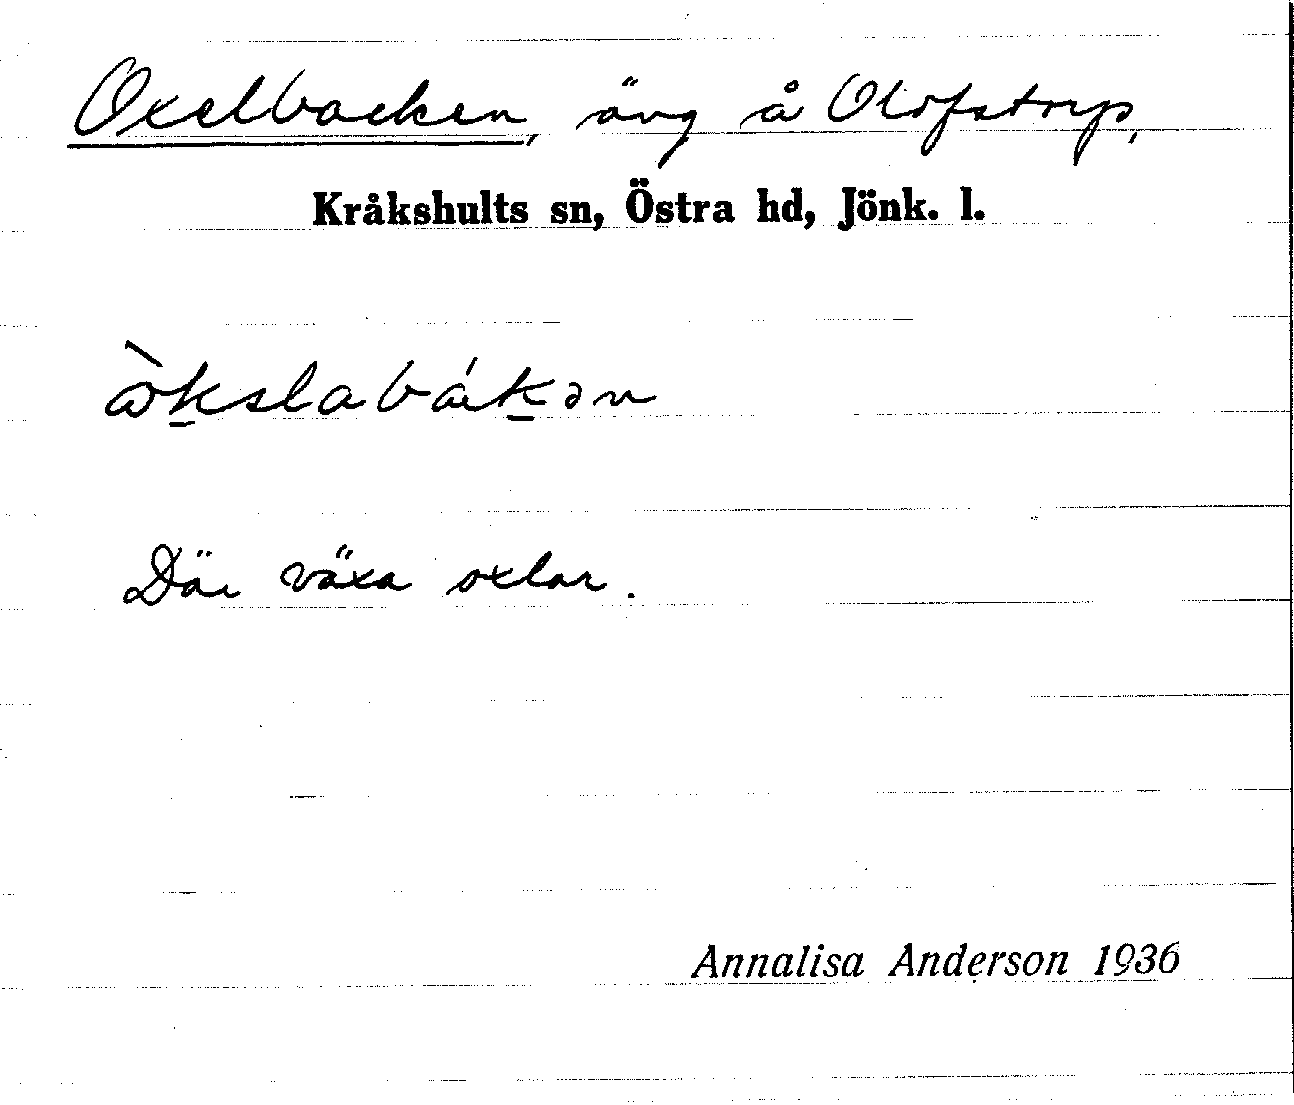 Oxelbacken, äng å Olofstorp,
Kråkshults sn, Östra hd, Jönk. l.
ò̀kslabákən
Där växa oxlar.
Annalisa Anderson 1936